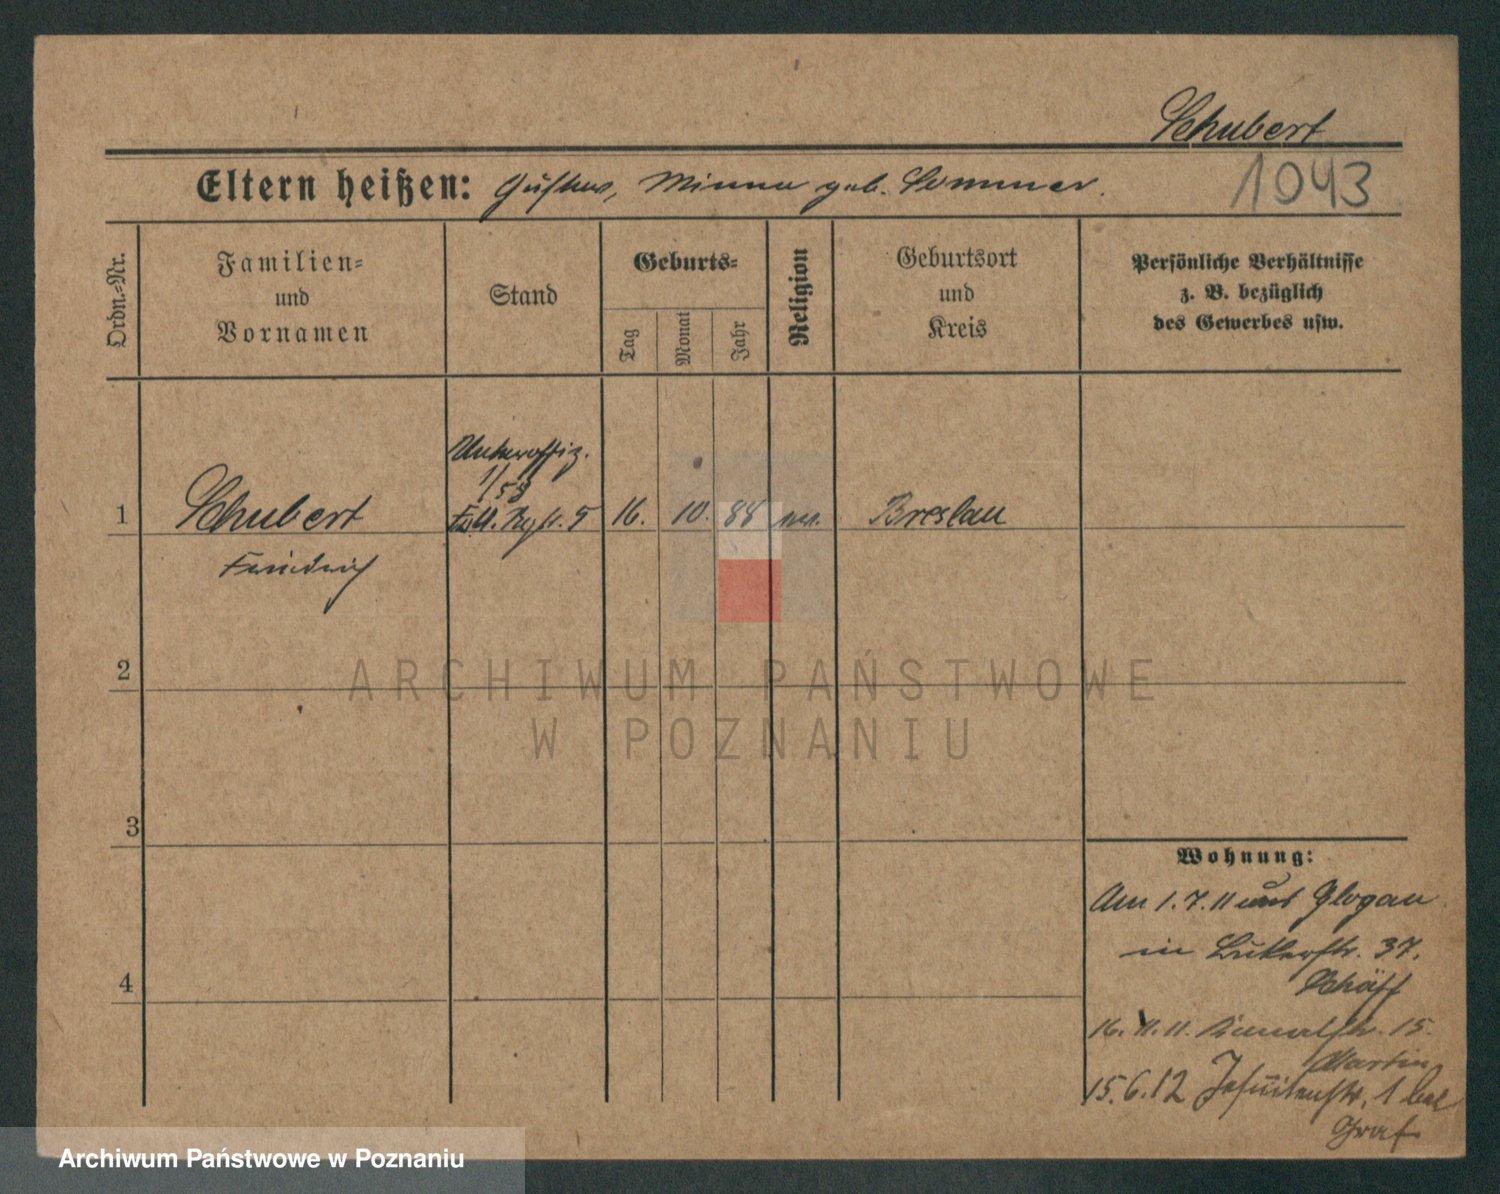 Schubert
Eltern heißen: Gustav, Minna geb. Sommer.
1043
Ordn.=Nr.
Familien=
und
Vornamen
Stand
Geburts=
Tag
Monat
Jahr
Religion
Geburtsort
und
Kreis
Persönliche Verhältnisse
z. B. bezüglich
des Gewerbes usw.
Unteroffiz.
1 Schubert 16. 10. 88 Breslau
Friedrich
2
3
4
Wohnung:
Am 1.7.11 aus Glogau
in 37.
Schäff
16. 11. 11. 15.
Martin
15.6.12 Jesuitenstr. 1 bei
Graf
ARCHIWUM PAŃSTWOWE
W POZNANIU
Archiwum Państwowe w Poznaniu